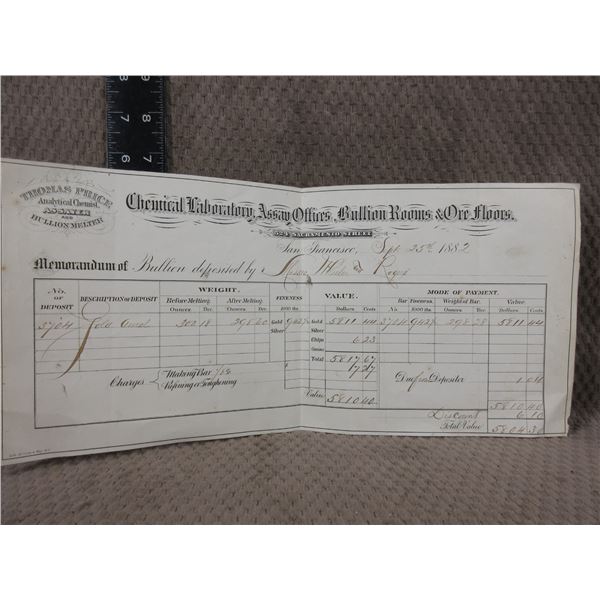 9 8 7 6
8 7
THOMAS PRICE
Analytical Chemist,
ASSAYER
AND
BULLION MELTER
Chemical Laboratory, Assay Offices, Bullion Rooms & Ore Floors.
524 SACRAMENTO STREET
San Francisco, Sept 25th 1882
Memorandum of Bullion deposited by
No. OF DEPOSIT DESCRIPTION OF DEPOSIT WEIGHT. FINENESS VALUE. MODE OF PAYMENT.
Before Melting. After Melting. Bar Fineness. Weight of Bar. Value.
Ounces Dec. Ounces Dec. 1000 ths Dollars Cents No. 1000 ths Ounces Dec. Dollars Cents
5704 Gold 302 18 298 60 Gold 5811 44 5704 298 28 5811 44
Silver
Chips 6 23
Grains
Total 5817 67
Charges Making Bar 7 27
Refining or Toughening
Due Depositor
Value 5810 40 5810 40
Discount 6 10
Total Value 5804 30